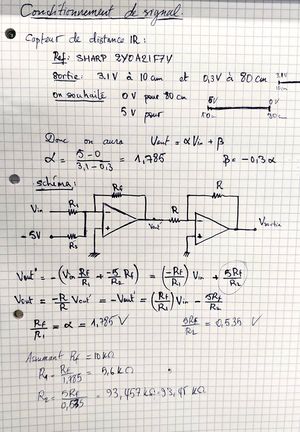 Conditionnement de signal.
Capteur de distance IR :
Ref : SHARP 2Y0A21F7V
Sortie : 3.1V à 10cm et 0,3V à 80cm
on souhaite 0V pour 80cm
5V pour
5V 0V
10cm 80cm
Donc on aura Vout = αVin + β
α = 5-0 / 3,1-0,3 = 1,785 β = -0,3α
schéma :
Rf R
Vin R1 Vout' R Vsortie
-5V R2
Vout' = -(Vin Rf/R1 + -5 Rf/R2) = (-Rf/R1) Vin + 5Rf/R2
Vout = -R/R Vout' = -Vout' = (Rf/R1) Vin - 5Rf/R2
Rf/R1 = α = 1,785 V 5Rf/R2 = 0,535 V
Assumant Rf = 10kΩ
R1 = Rf/1,785 = 5,6 kΩ
R2 = 5Rf/0,535 = 93,457kΩ